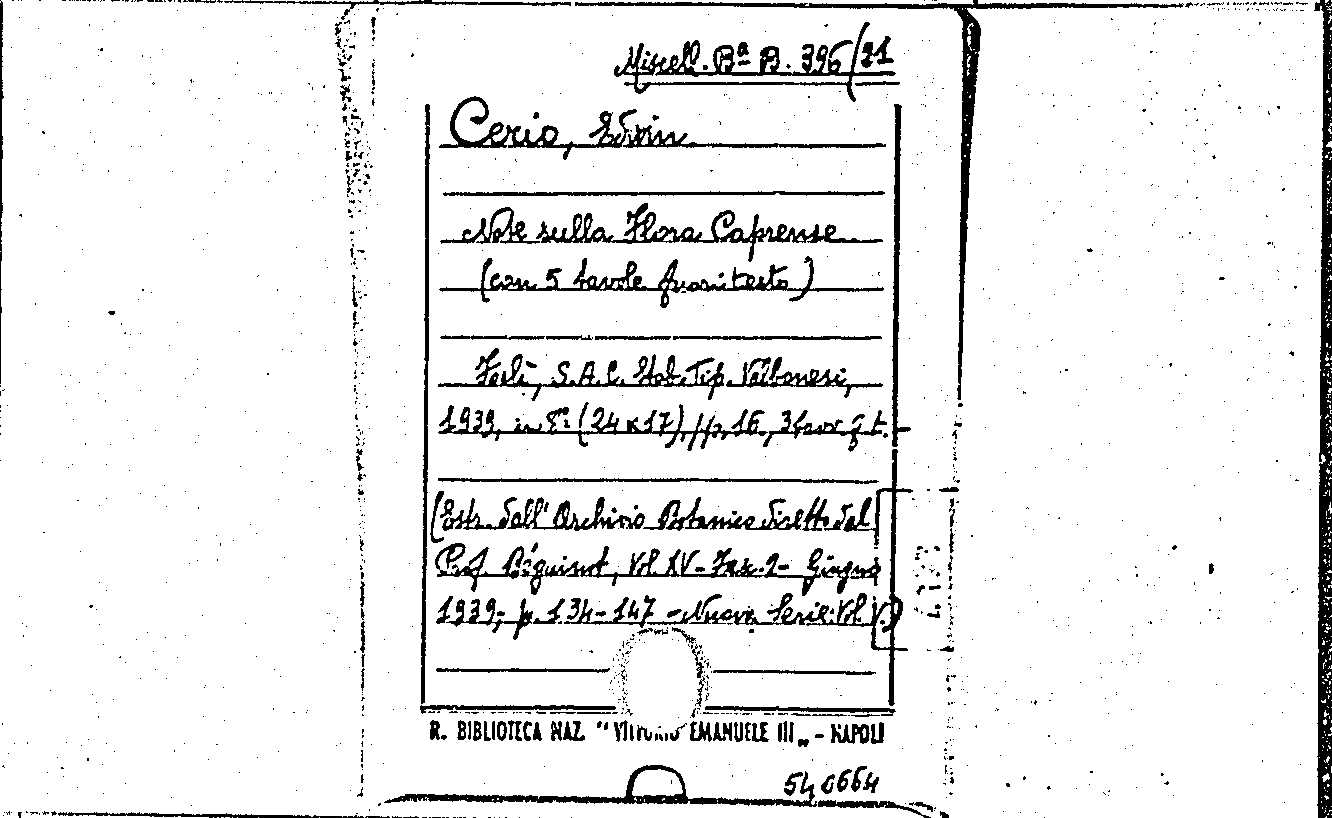 Miscell. Bª B. 396/21
Cerio, Edwin.
Note sulla Flora Caprense
(con 5 tavole fuori testo)
Forlì, S.A.C. Stab. Tip. Valbonesi,
1939, in 8º (24x17), pp. 16, 3 tavv. f. t.
(Estr. dall' Archivio Botanico diretto dal
Prof. Béguinot, Vol. XV - Fasc. 2 - Giugno
1939, p. 134-147 - Nuova Serie: Vol. V.)
R. BIBLIOTECA NAZ. “VITTORIO EMANUELE III„ - NAPOLI
540664